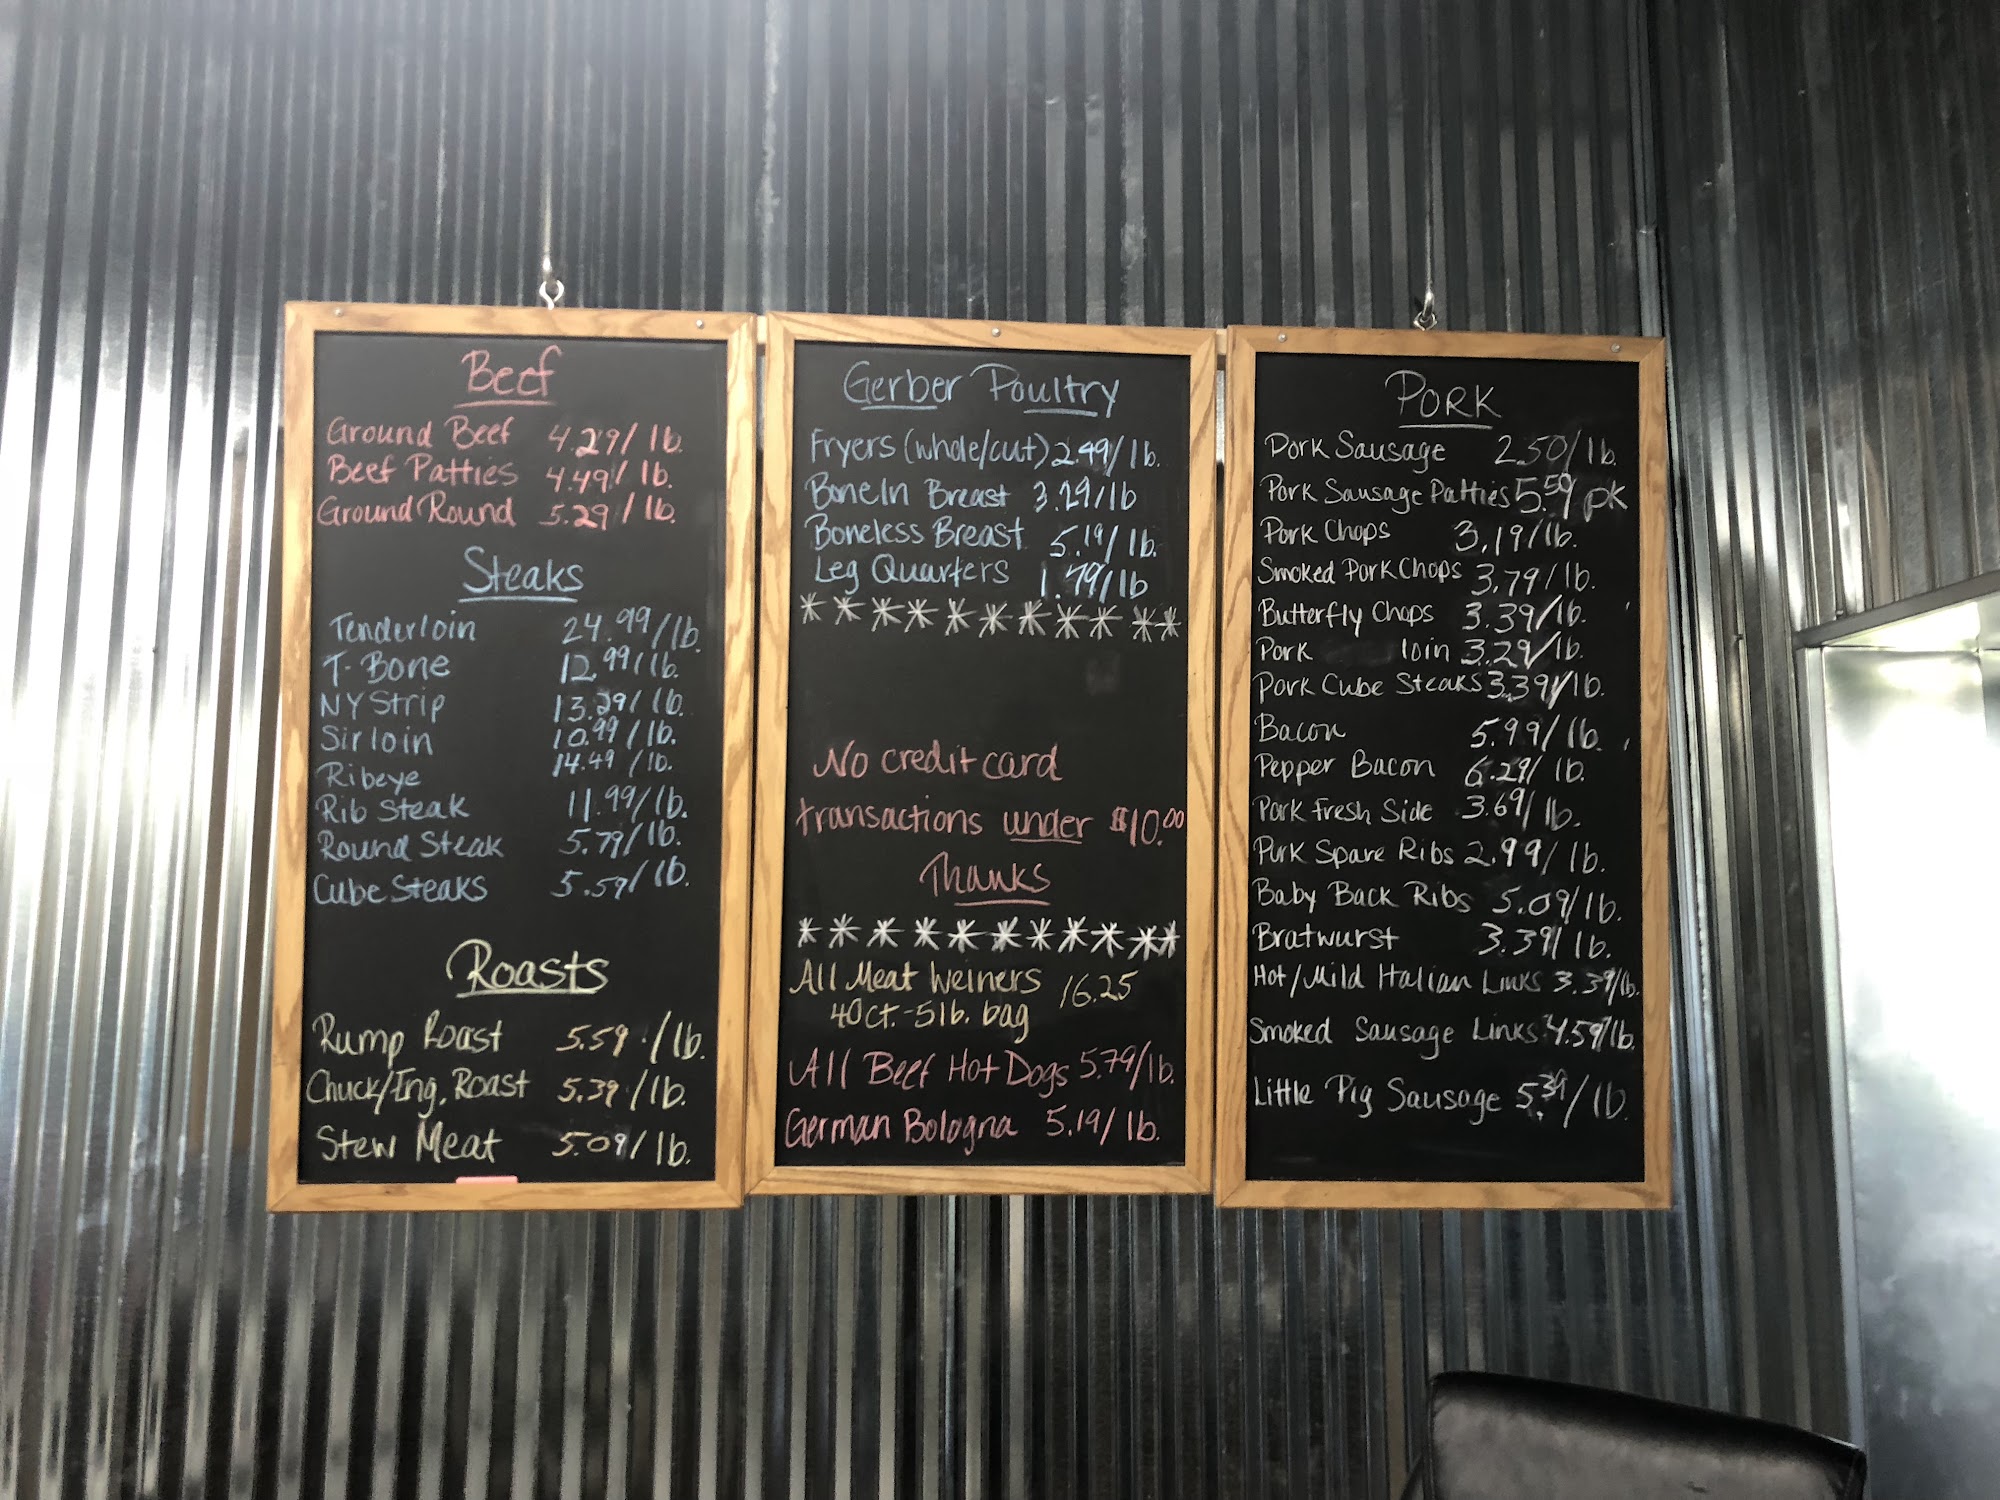 Beef
Ground Beef 4.29/lb.
Beef Patties 4.49/lb.
Ground Round 5.29/lb.
Steaks
Tenderloin 24.99/lb.
T-Bone 12.99/lb.
NY Strip 13.29/lb.
Sirloin 10.99/lb.
Ribeye 14.49/lb.
Rib Steak 11.99/lb.
Round Steak 5.79/lb.
Cube Steaks 5.59/lb.
Roasts
Rump Roast 5.59/lb.
Chuck/Eng. Roast 5.39/lb.
Stew Meat 5.09/lb.
Gerber Poultry
Fryers (whole/cut) 2.49/lb.
BoneIn Breast 3.29/lb
Boneless Breast 5.19/lb.
Leg Quarters 1.79/lb
No credit card
transactions under $10.00
Thanks
All Meat Weiners 16.25
40ct.-5lb. bag
All Beef Hot Dogs 5.79/lb.
German Bologna 5.19/lb.
PORK
Pork Sausage 2.50/lb.
Pork Sausage Patties 5.59 pk
Pork Chops 3.19/lb.
Smoked Pork Chops 3.79/lb.
Butterfly Chops 3.39/lb.
Pork loin 3.29/lb.
Pork Cube Steaks 3.39/lb.
Bacon 5.99/lb.
Pepper Bacon 6.29/lb.
Pork Fresh Side 3.69/lb.
Pork Spare Ribs 2.99/lb.
Baby Back Ribs 5.09/lb.
Bratwurst 3.39/lb.
Hot/Mild Italian Links 3.39/lb.
Smoked Sausage Links 4.59/lb.
Little Pig Sausage 5.39/lb.